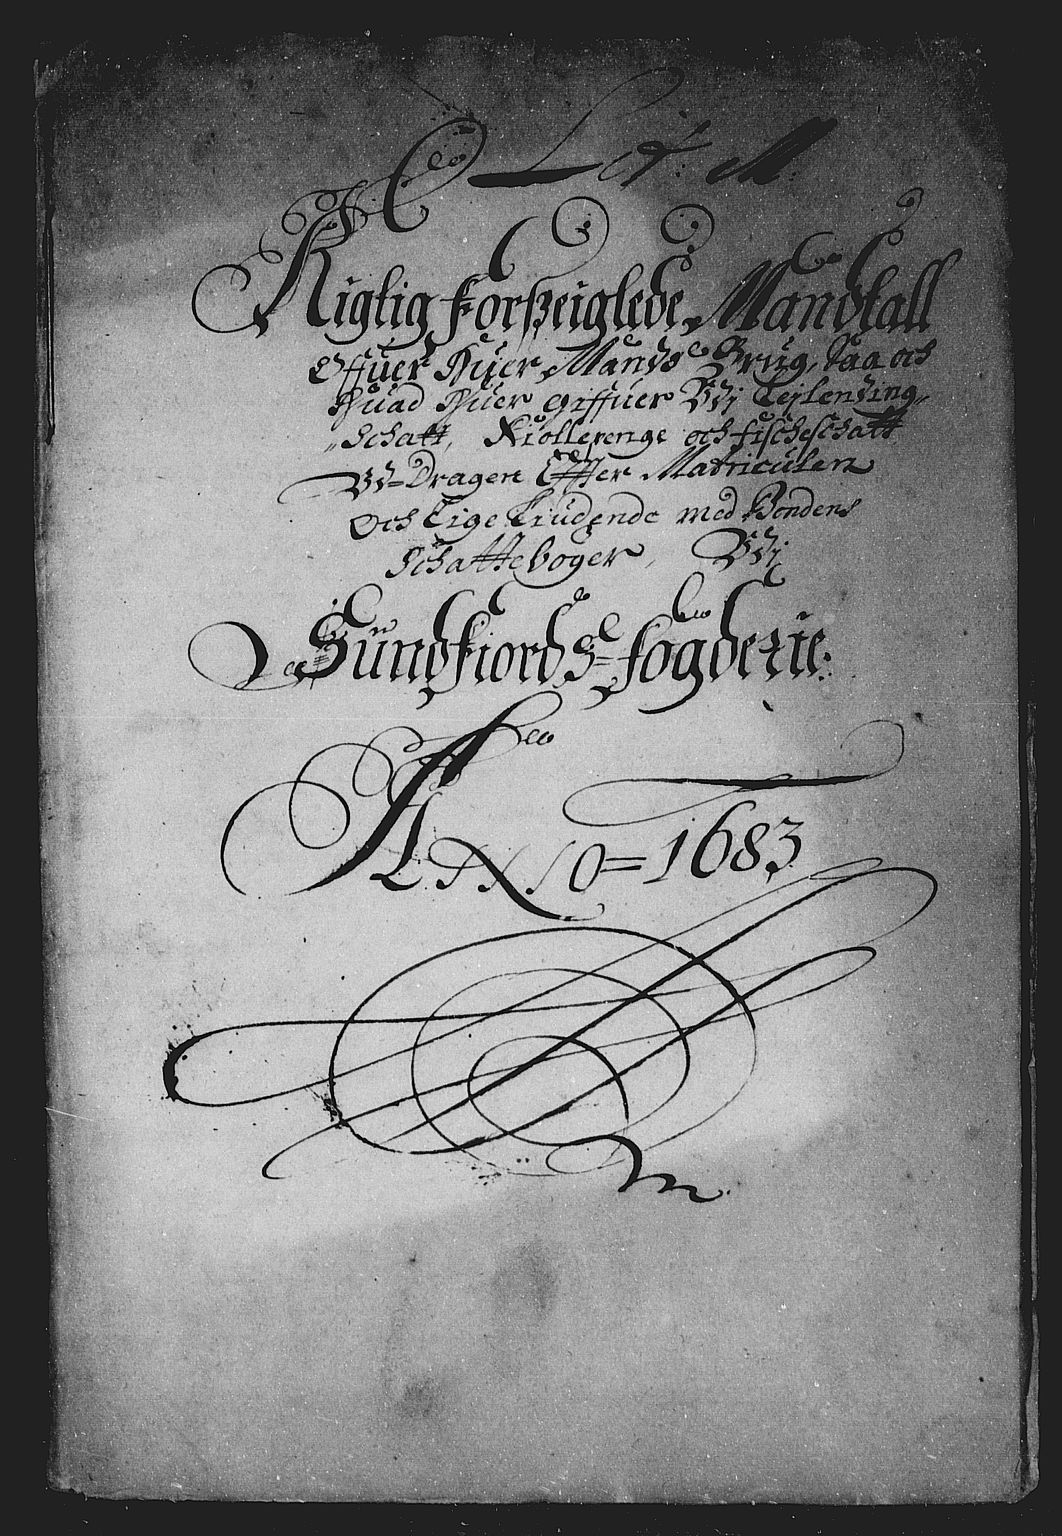 Lit: M:
Rigtig forßeiglede Mandtall
Offuer Huer Mands Brug, Saa och
Huad Huer giffuer Udj Leylending„
„Schatt, Kiøllepenge och fischeschatt
Ud-Dragen Effter Matriculen
Och Lige Liudende med Bondens
Schattebøger, Udj
Sundfiords=fogderie:
ANNO=1683